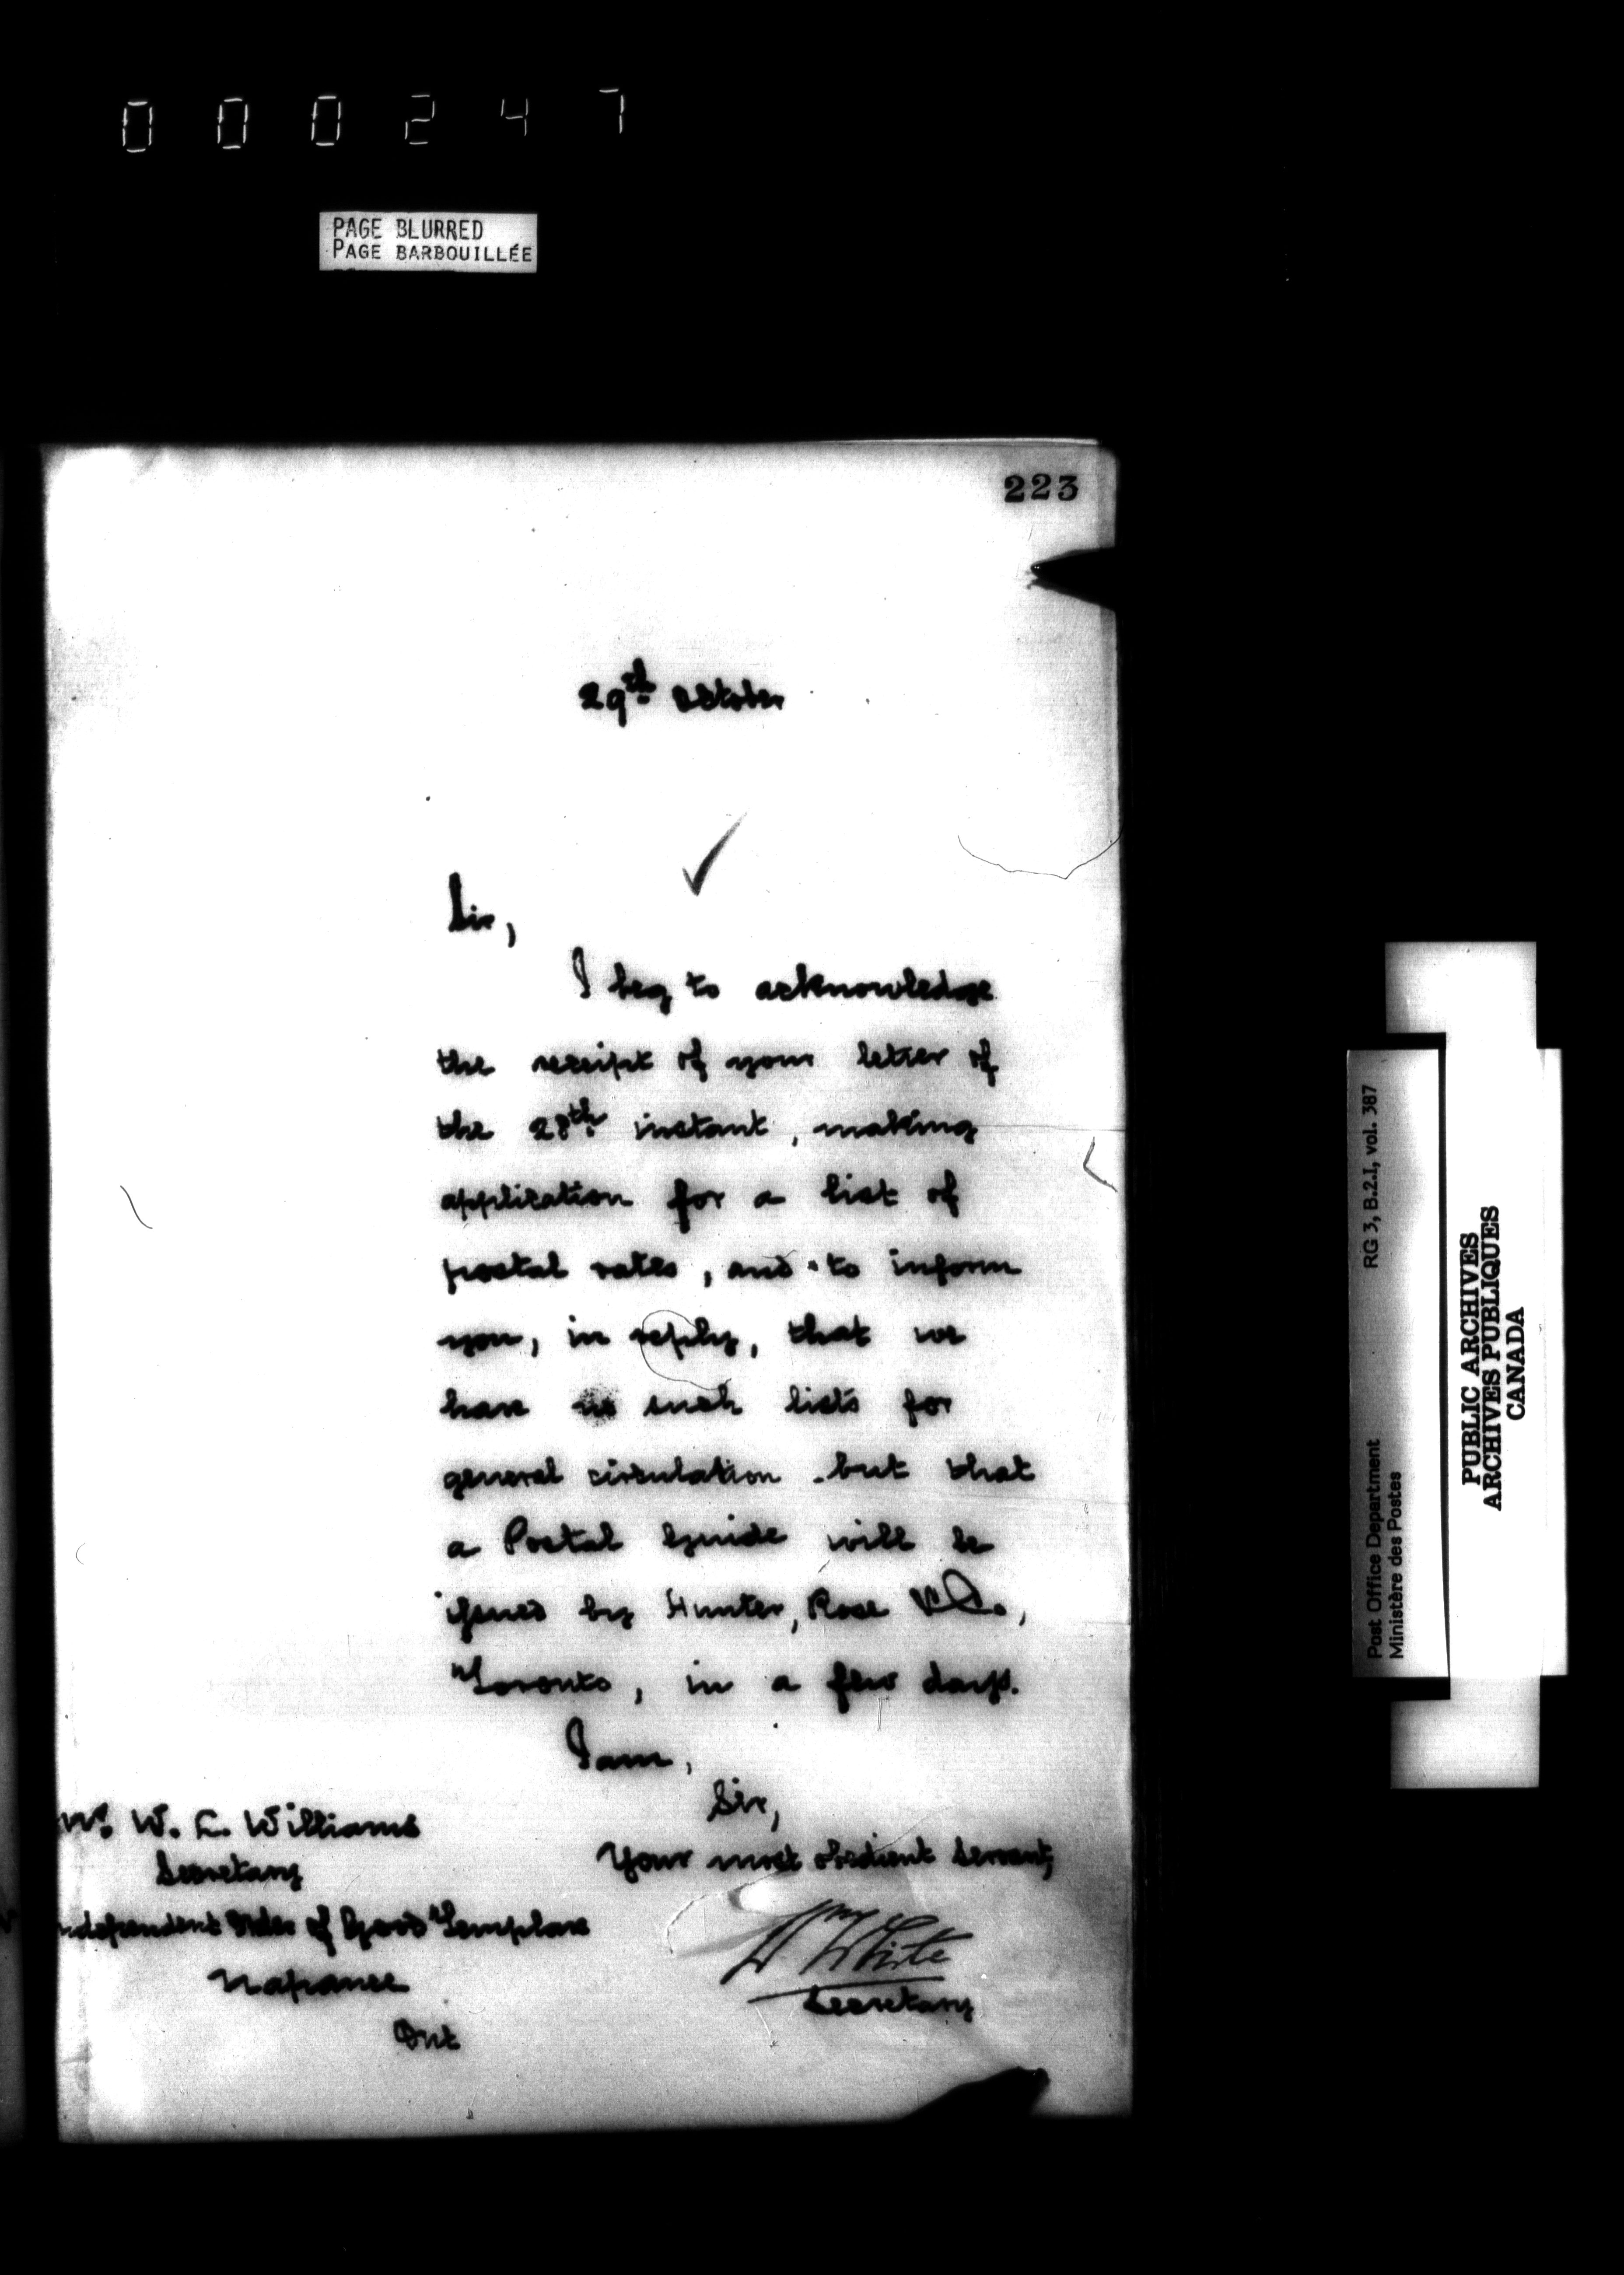 000247
PAGE BLURRED
PAGE BARBOUILLÉE
223
29th October
Sir,
I beg to acknowledge
the receipt of your letter of
the 28th instant, making
application for a list of
postal rates, and to inform
you, in reply, that we
have no such lists for
general circulation but that
a Postal Guide will be
issued by Hunter, Rose & Co.,
Toronto, in a few days.
I am,
Sir,
Your most obedient servant,
Wm White
Secretary
Mr. W. L. Williams
Secretary
Independent Order of Good Templars
Napanee
Ont
Post Office Department RG 3, B.2.I, vol. 387
Ministère des Postes
PUBLIC ARCHIVES
ARCHIVES PUBLIQUES
CANADA